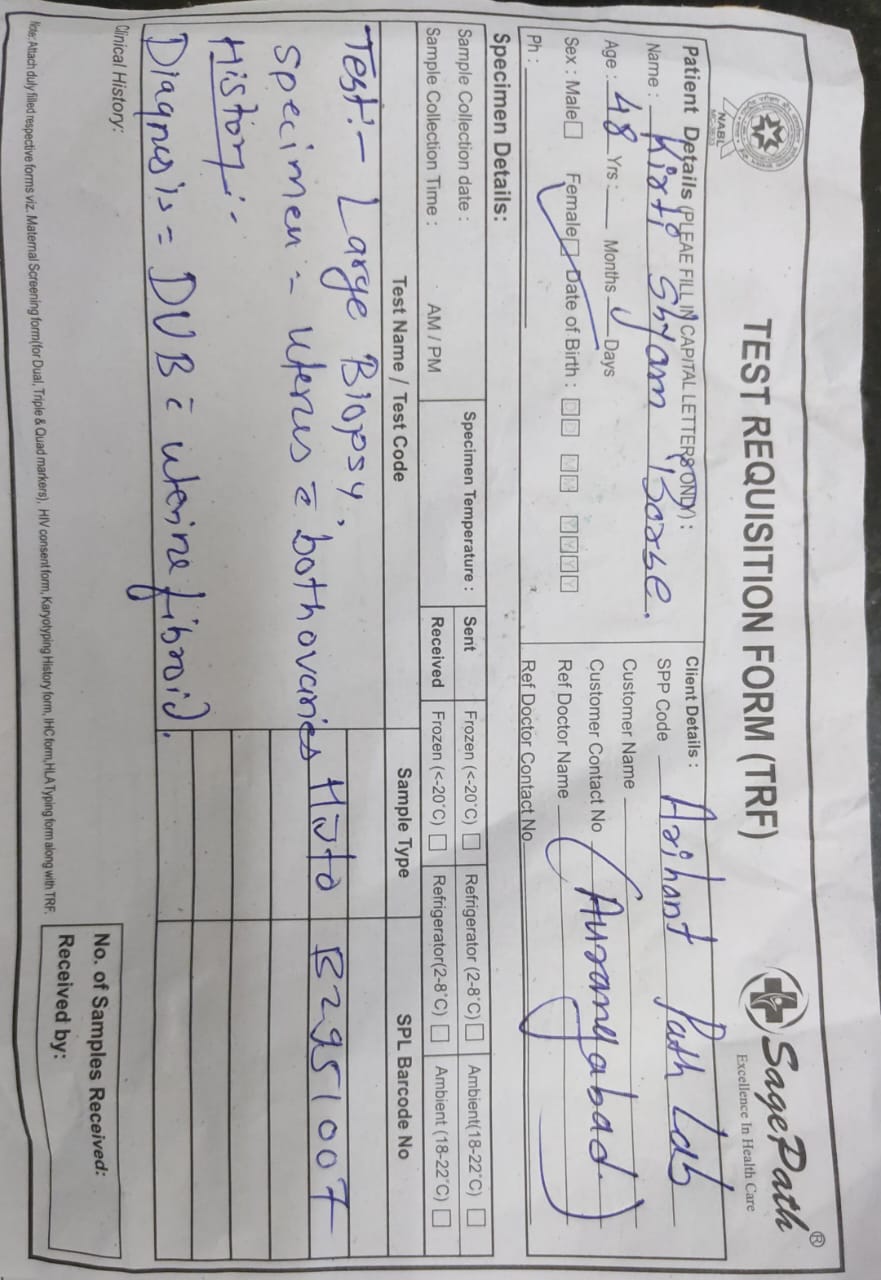 NABL
TEST REQUISITION FORM (TRF)
SagePath®
Excellence In Health Care
Patient Details (PLEAE FILL IN CAPITAL LETTERS ONLY) :
Name : Kirti Shyam Borse.
Age : 48 Yrs : Months Days
Sex : Male Female Date of Birth : D D M M Y Y Y Y
Ph :
Client Details :
SPP Code Arihant Path Lab
Customer Name
Customer Contact No (Aurangabad.)
Ref Doctor Name
Ref Doctor Contact No
Specimen Details:
Sample Collection date :
Sample Collection Time : AM / PM
Specimen Temperature :
Sent Frozen (<-20°C) Refrigerator (2-8°C) Ambient(18-22°C)
Received Frozen (<-20°C) Refrigerator(2-8°C) Ambient (18-22°C)
Test Name / Test Code Sample Type SPL Barcode No
Test:- Large Biopsy.
Specimen :- uterus c̄ both ovaries Histo B2951007
History :-
Diagnosis = DUB c̄ uterine fibroid.
Clinical History:
No. of Samples Received:
Received by:
Note: Attach duly filled respective forms viz. Maternal Screening form(for Dual, Triple & Quad markers), HIV consent form, Karyotyping History form, IHC form,HLA Typing form along with TRF.